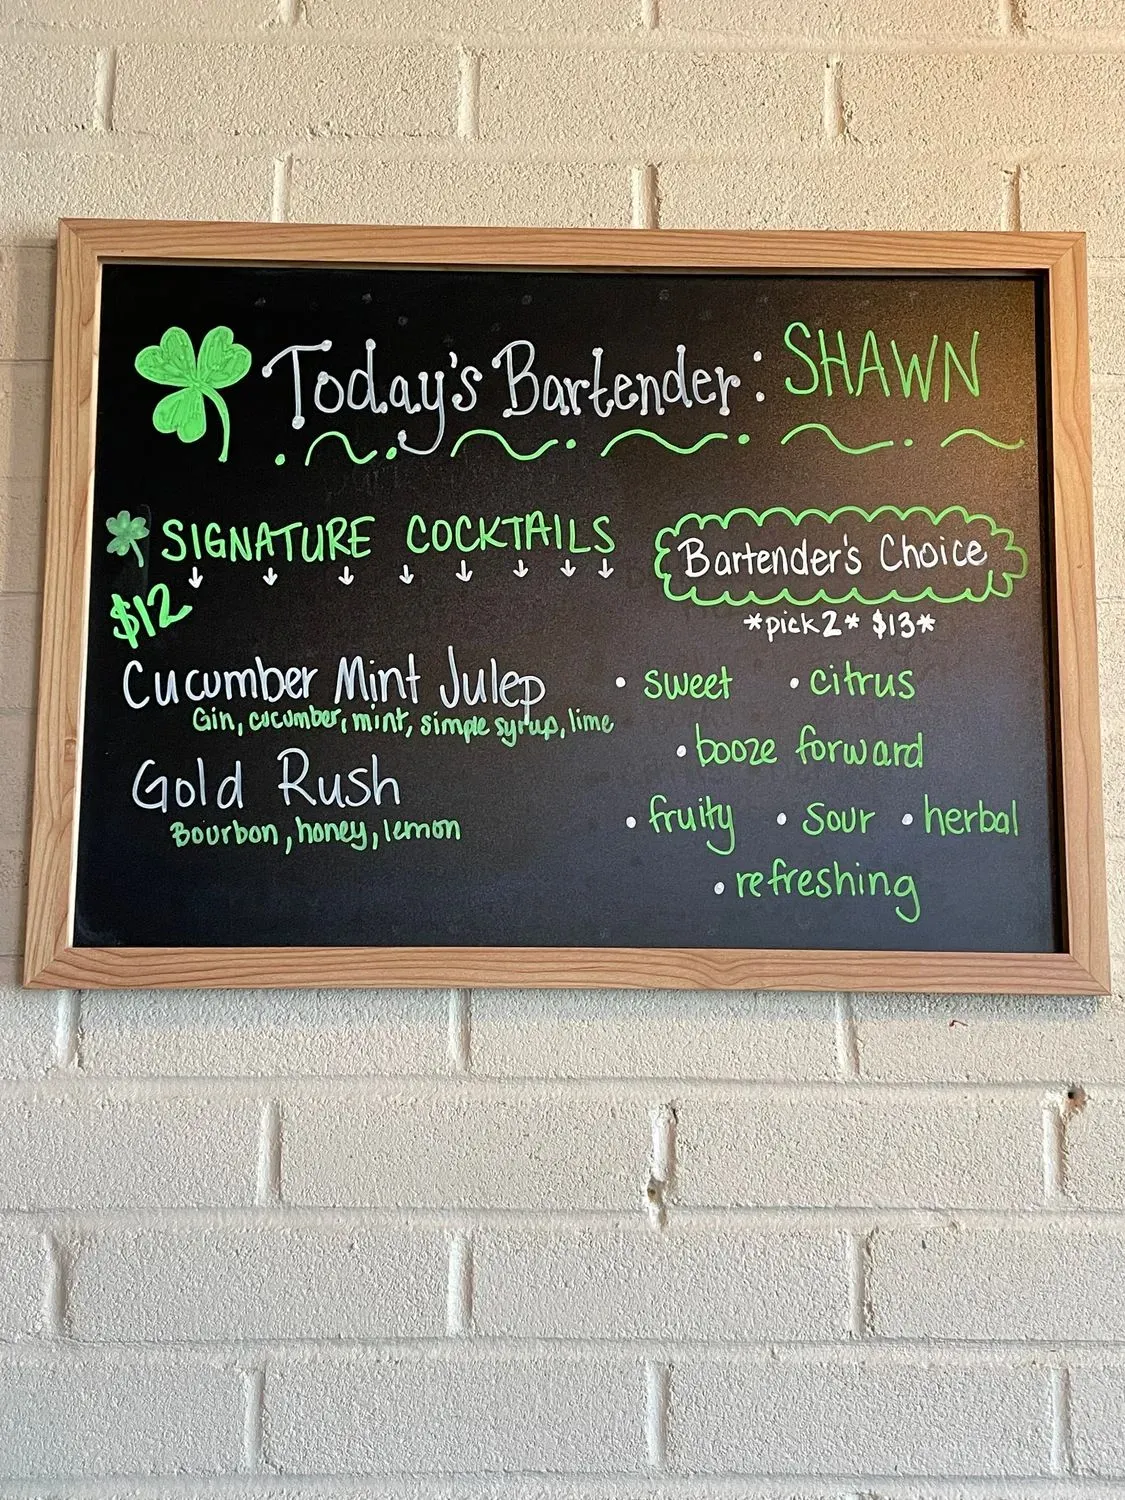 Today's Bartender: SHAWN
SIGNATURE COCKTAILS
$12
Cucumber Mint Julep
Gin, cucumber, mint, simple syrup, lime
Gold Rush
Bourbon, honey, lemon
Bartender's Choice
*pick 2* $13*
• sweet • citrus
• booze forward
• fruity • sour • herbal
• refreshing